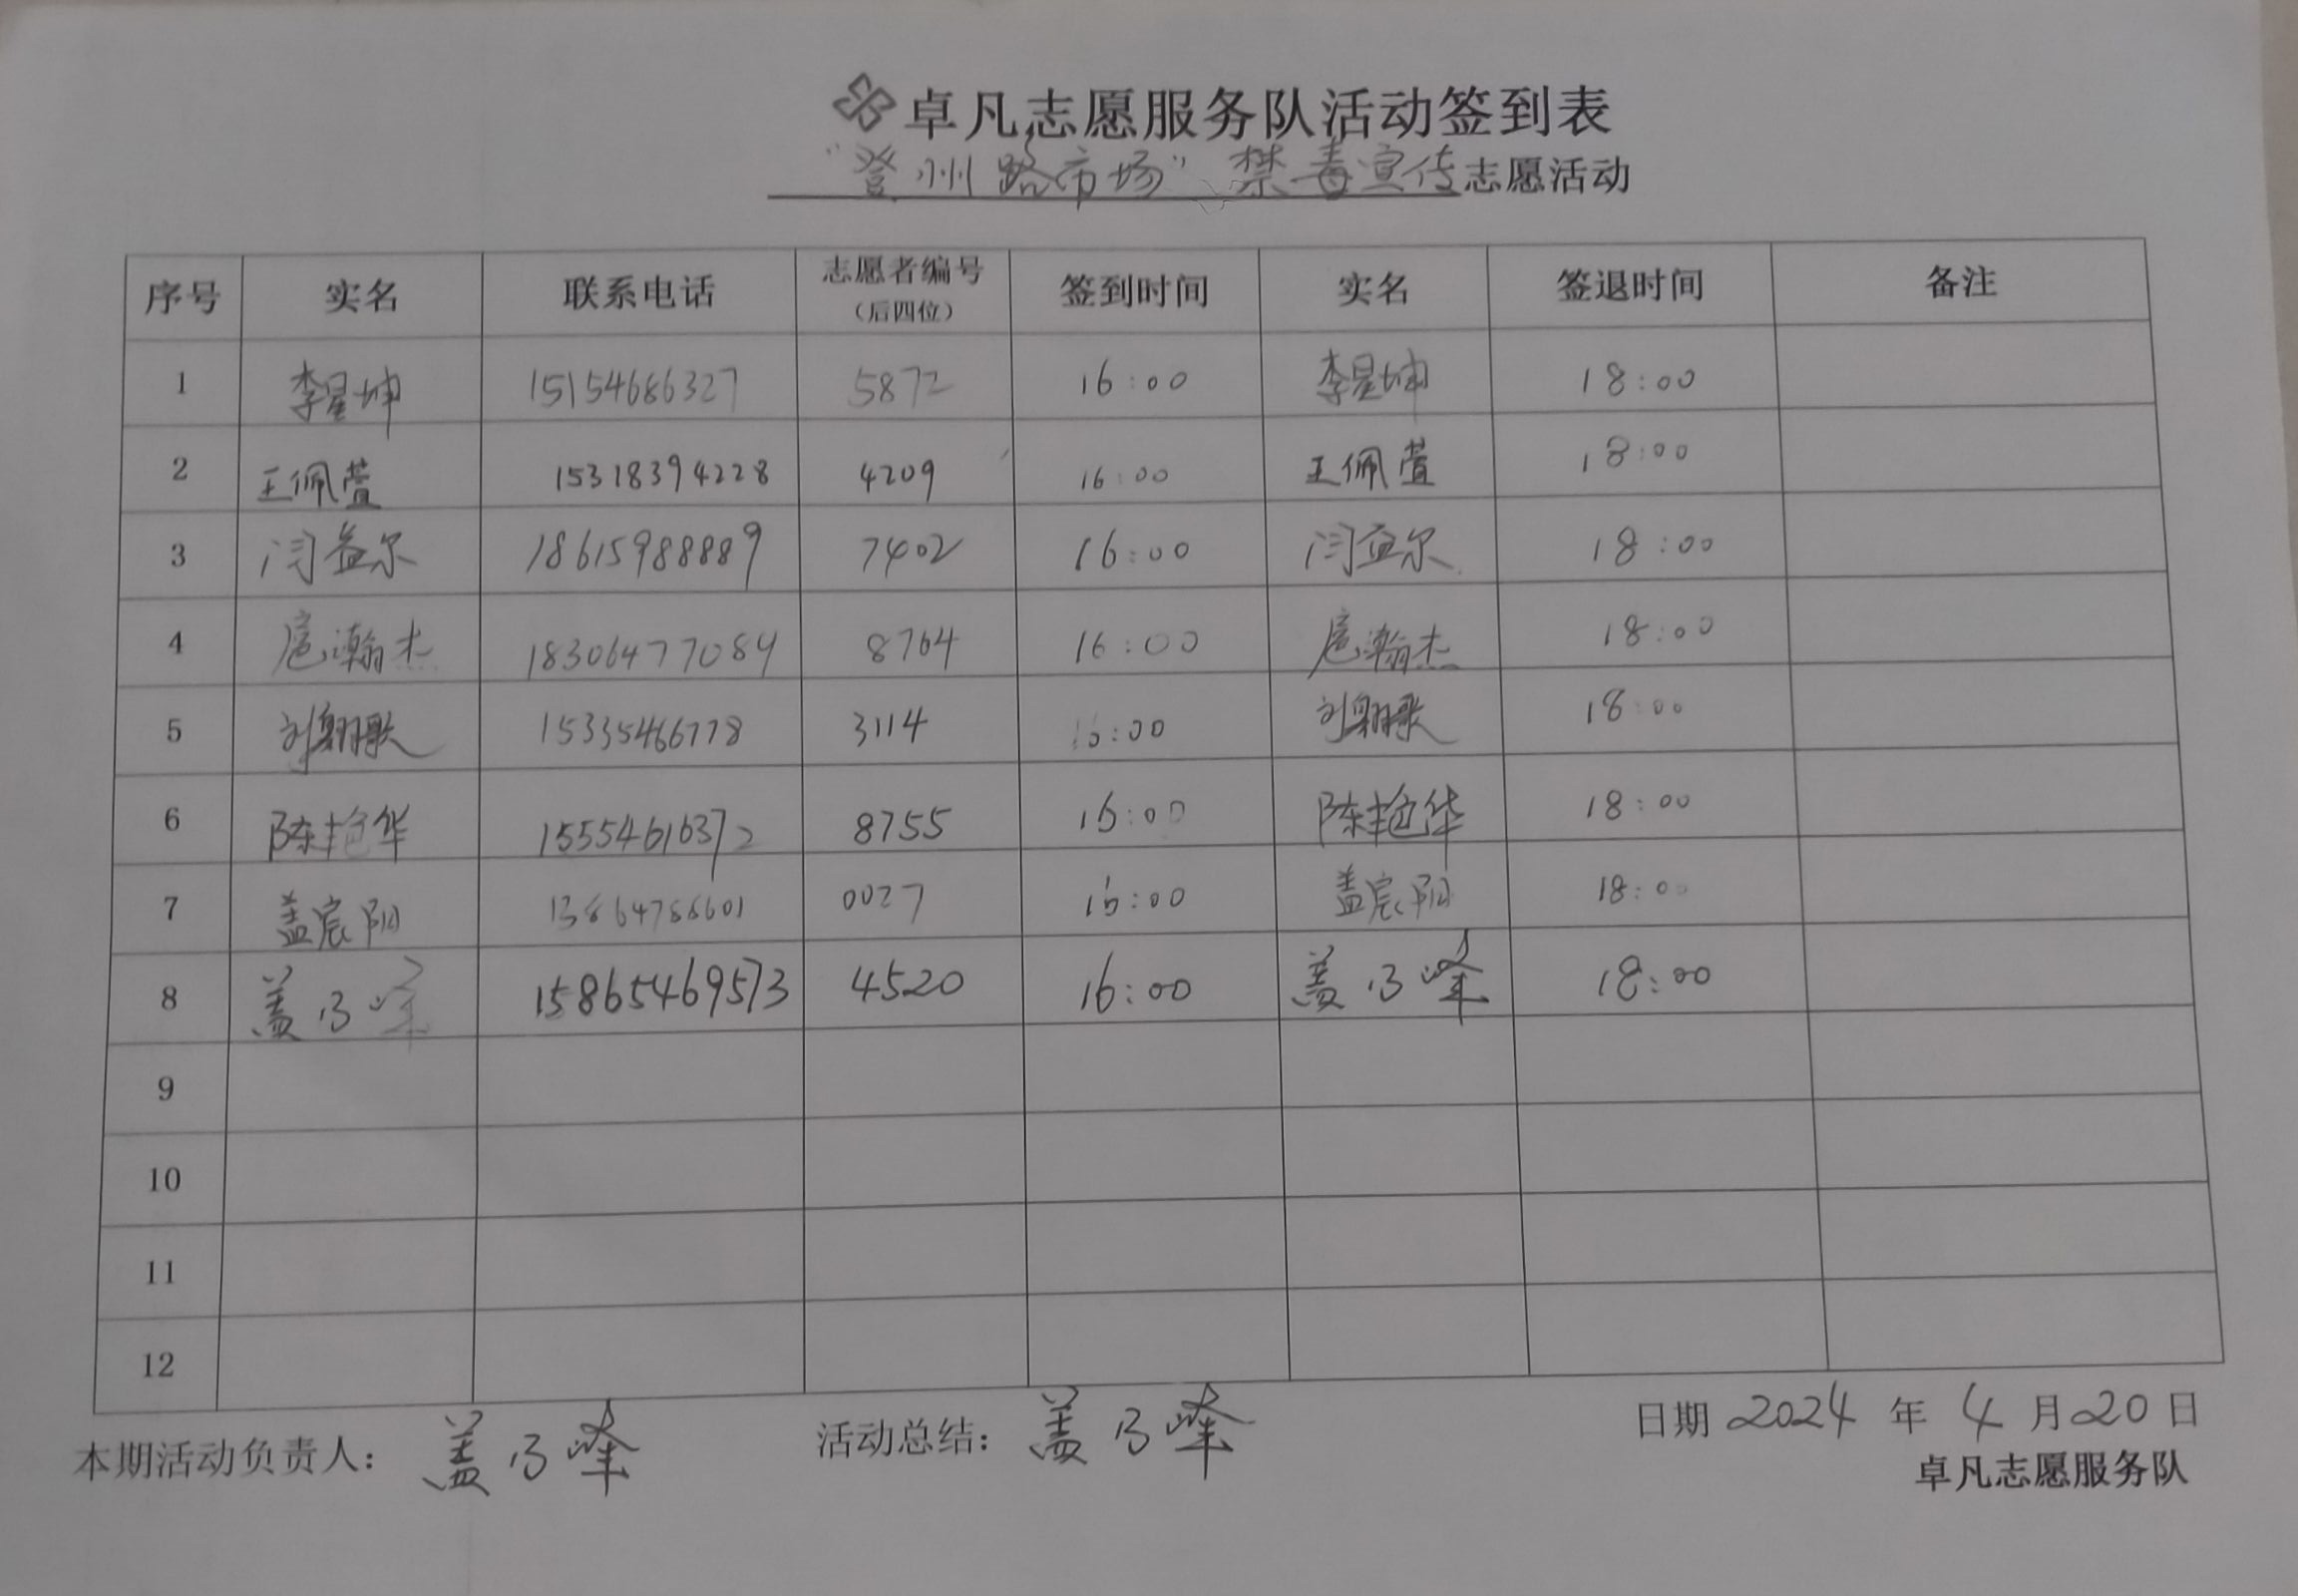 卓凡志愿服务队活动签到表
“登州路市场”禁毒宣传志愿活动
序号 实名 联系电话 志愿者编号（后四位） 签到时间 实名 签退时间 备注
1 李星坤 15154686327 5872 16:00 李星坤 18:00
2 王佩萱 15318394228 4209 16:00 王佩萱 18:00
3 闫益尔 18615988889 7402 16:00 闫益尔 18:00
4 扈瀚杰 18306477084 8764 16:00 扈瀚杰 18:00
5 刘翱歌 15335466778 3114 16:00 刘翱歌 18:00
6 陈艳华 15554616372 8755 16:00 陈艳华 18:00
7 盖宸阳 0027 16:00 盖宸阳 18:00
8 盖乃峰 15865469573 4520 16:00 盖乃峰 18:00
9
10
11
12
本期活动负责人： 盖乃峰 活动总结： 盖乃峰 日期 2024 年 4 月 20 日
卓凡志愿服务队